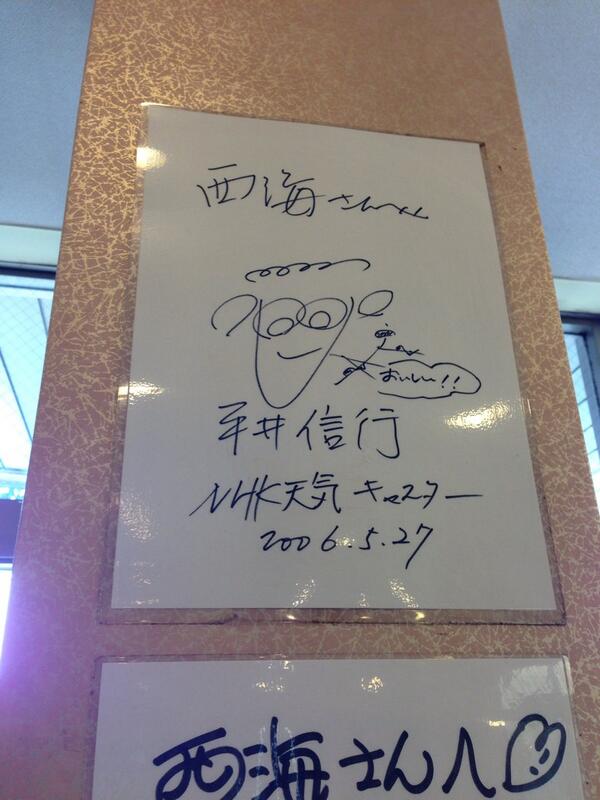 西海さんへ
おいしい!!
平井信行
NHK天気キャスター
2006.5.27
西海さんへ